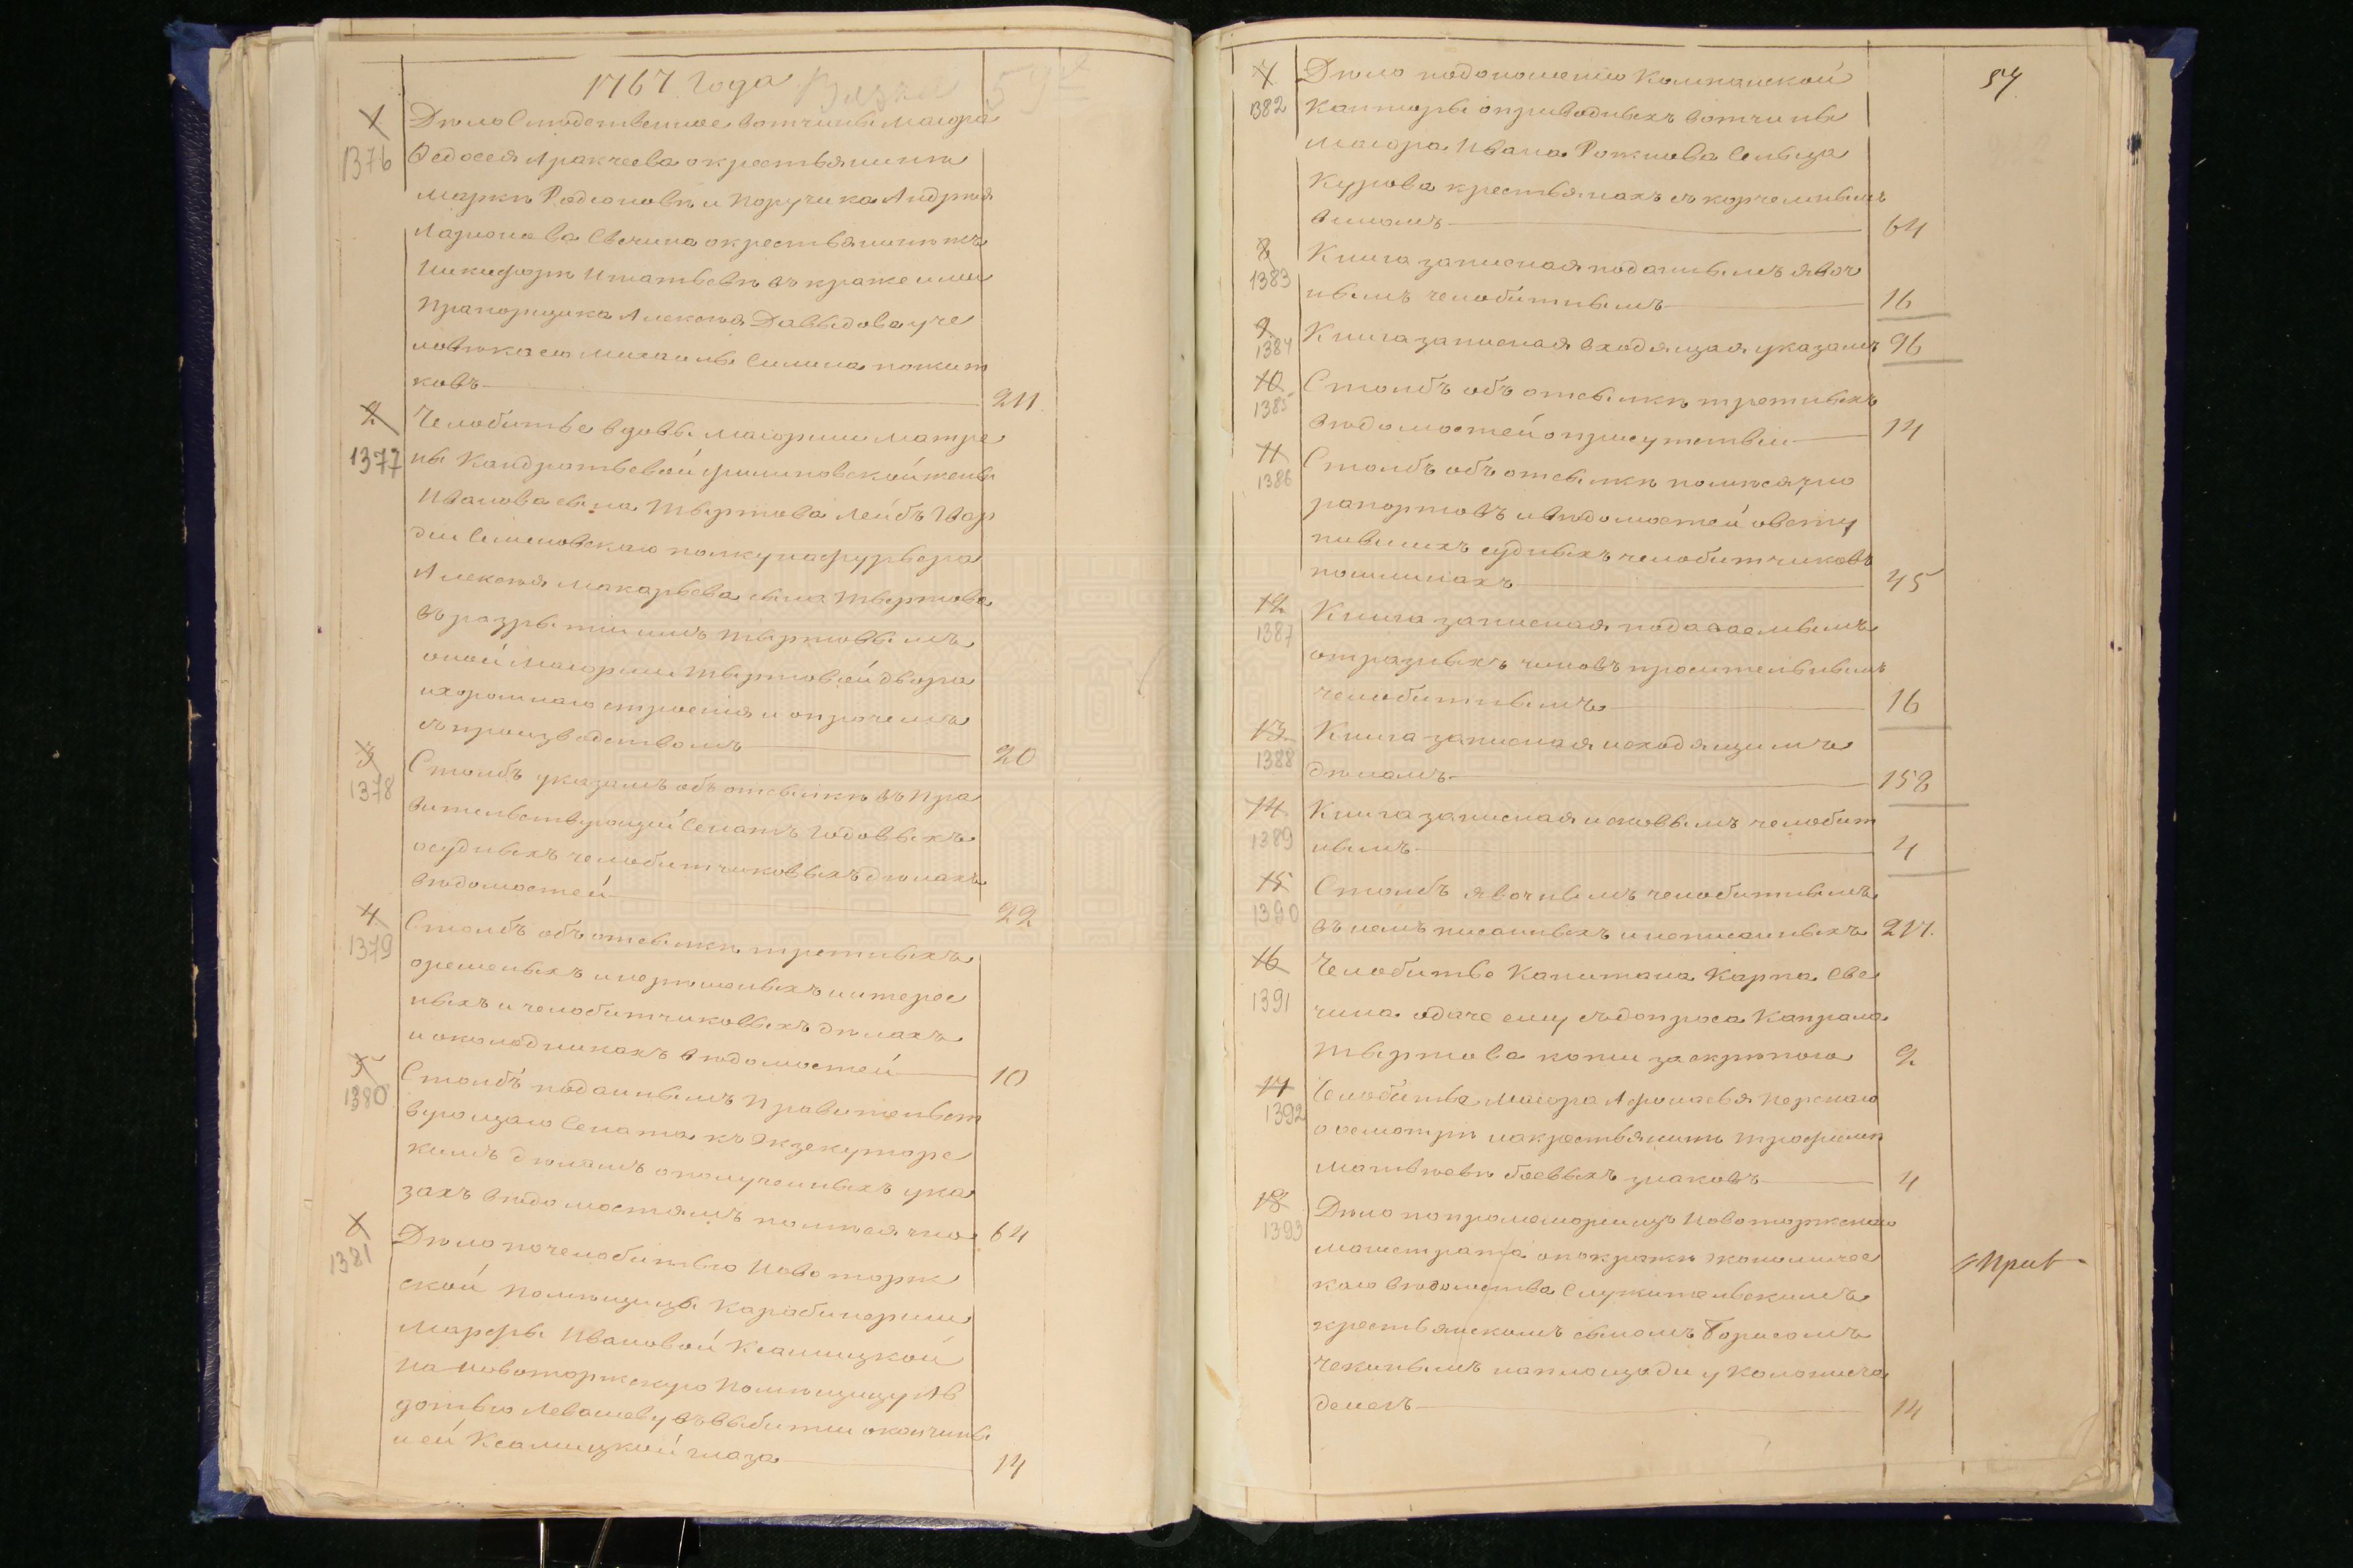 1767 Года Вязка 59я
1
1376
Дѣло Слѣдственное вотчины Маіора
Ѳедосея Аракчеева окрестьянинѣ
Маркѣ Родионовѣ и Поручика Андрѣя
Ларионова Свечина окрестьянинѣжъ
Никифорѣ Игнатьевѣ въ краже ими
Прапорщика Алексѣя Давыдова у че
ловѣка ево Михаилы Силина пожит
ковъ 211.
2
1377
Челобитье вдовы Маіорши Матре
ны Кандратьевой филиповской жены
Иванова сына Твертова Лейбъ Гвар
діи Семеновскаго полку на фурьера
Алексѣя Макарьева сына Твертова
въ разрытіи имъ Твертовымъ
оной Маіорши Твертовой двора
ихоромнаго строенія и опрочемъ
съ производствомъ 20
3
1378
Столбъ указамъ объ отсылкѣ въ Пра
вительствующій Сенатъ Годовыхъ
осудныхъ челобитчиковыхъ дѣлахъ
вѣдомостей 22
4
1379
Столбъ объ отсылкѣ третныхъ
орешеныхъ инерѣшеныхъ интерес
ныхъ и челобитчиковыхъ дѣлахъ
и околодникахъ вѣдомостей 10
5
1380
Столбъ поданнымъ Правительст
вующаго Сената къ Экзекуторс
кимъ дѣламъ ополученныхъ ука
захъ вѣдомостямъ помѣсячно 64
6
1381
Дѣло почелобитью Новоторж
ской Помѣщицы Карабинерши
Марфы Ивановой Ксаницкой
На Новоторжскую Помѣщицу Ав
дотью Левашеву въ выбитіи окончины
и ей Ксаницкой глаза 14
57
7
1382
Дѣло подоношенію Компанской
Канторы оприводныхъ вотчины
Маіора Ивана Рожнова Сельца
Курова крестьянахъ съ корчемнымъ
виномъ 64
8
1383
Книга записная поданнымъ явоч
нымъ челобитнымъ 16
9
1384
Книга записная входящая указамъ 96
10
1385
Столбъ объ отсылкѣ третныхъ
вѣдомостей оприсутствіи 14
11
1386
Столбъ объ отсылкѣ помѣсячно
рапортовъ ивѣдомостей овсту
пившихъ судныхъ челобитчиковъ
пошлинахъ 45
12
1387
Книга записная подаваемымъ
отразныхъ чиновъ просительнымъ
челобитнымъ 16
13
1388
Книга записная исходящимъ
дѣламъ 158
14
1389
Книга записная исковымъ челобит
нымъ 4
15
1390
Столбъ явочнымъ челобитнымъ
въ немъ писанныхъ инеписанныхъ 217.
16
1391
Челобитье Капитана Карпа Све
чина одаче ему съ допроса Капрала
Твертова копіи за скрѣпою 2
17
1392
Челобитье Маіора Афонасья Перскаго
оосмотрѣ накрестьянинѣ Трофимѣ
Матвѣевѣ боевыхъ знаковъ 4
18
1393
Дѣло попромеморіи изъ Новоторжскаго
Магистрата опокражѣ Экономичес
каго вѣдомства Служительскимъ
крестьянскимъ сыномъ Борисомъ
Чекинымъ наплощади у Коломнеча
денегъ 14